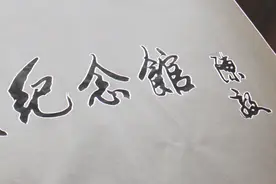 紀念館
陳毅